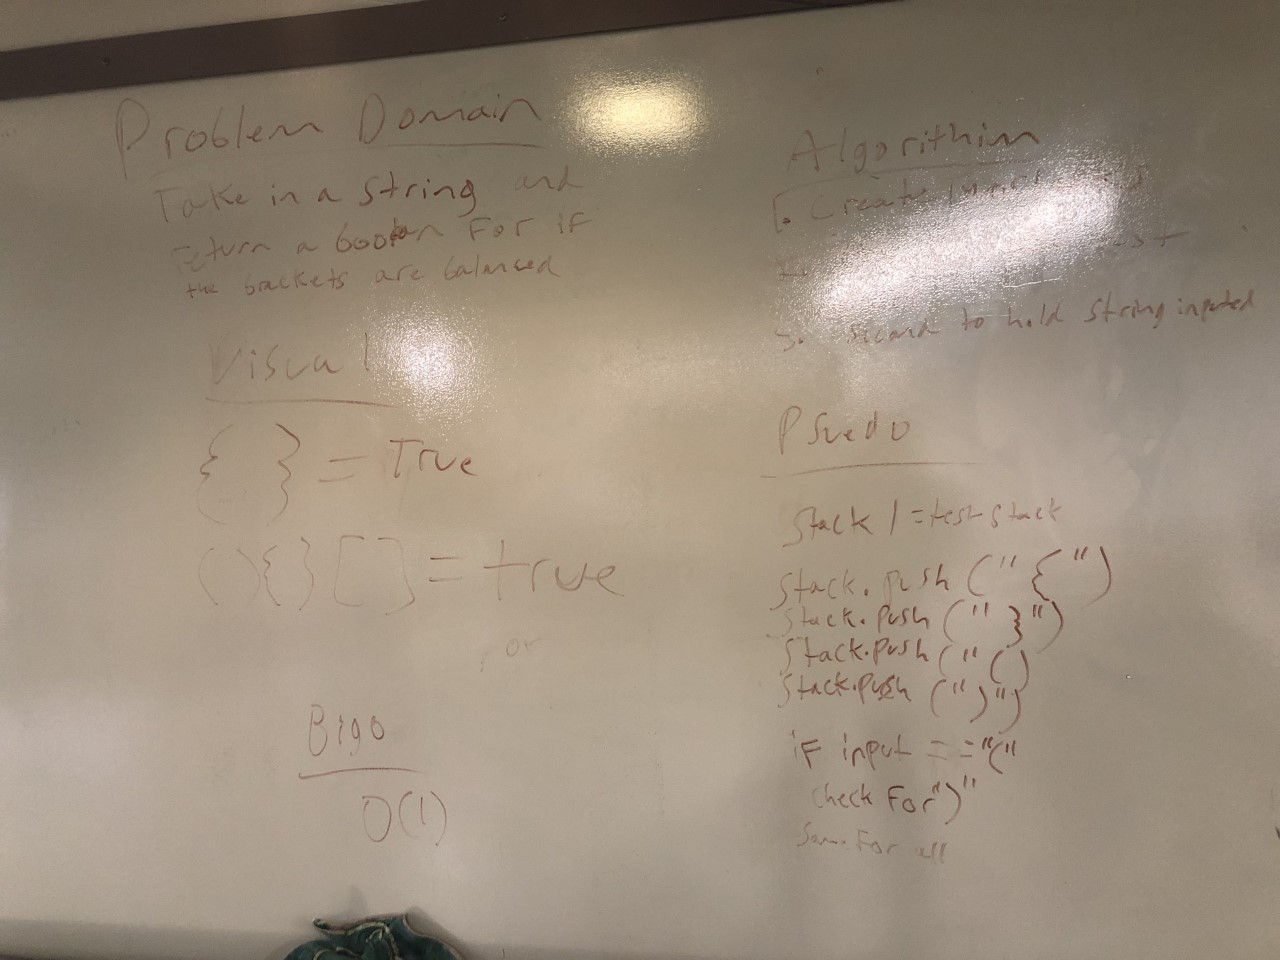 Problem Domain
Take in a string and
return a boolean For if
the brackets are balanced
Visual
{ } = True
(){}[] = true
or
Bigo
O(1)
Algorithim
1. Create
3. second to hold string inputed
Psuedo
Stack 1 = test stack
Stack.push ("{")
Stack.Push ("}")
Stack.push ("()
Stack.push (")")
if input == "("
Check For ")"
Same For all